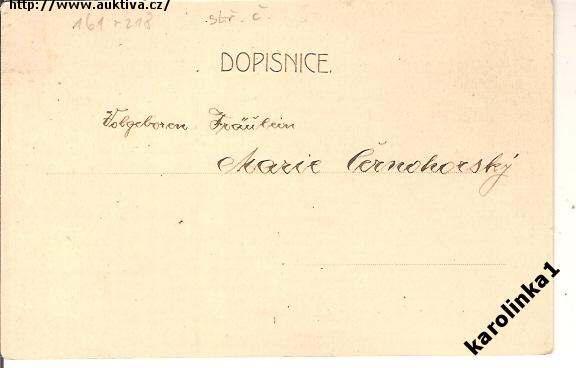 http://www.auktiva.cz/
161 r 218 stř. č.
DOPISNICE.
Volgeboren Fräulein
Marie Černohorský
karolinka1